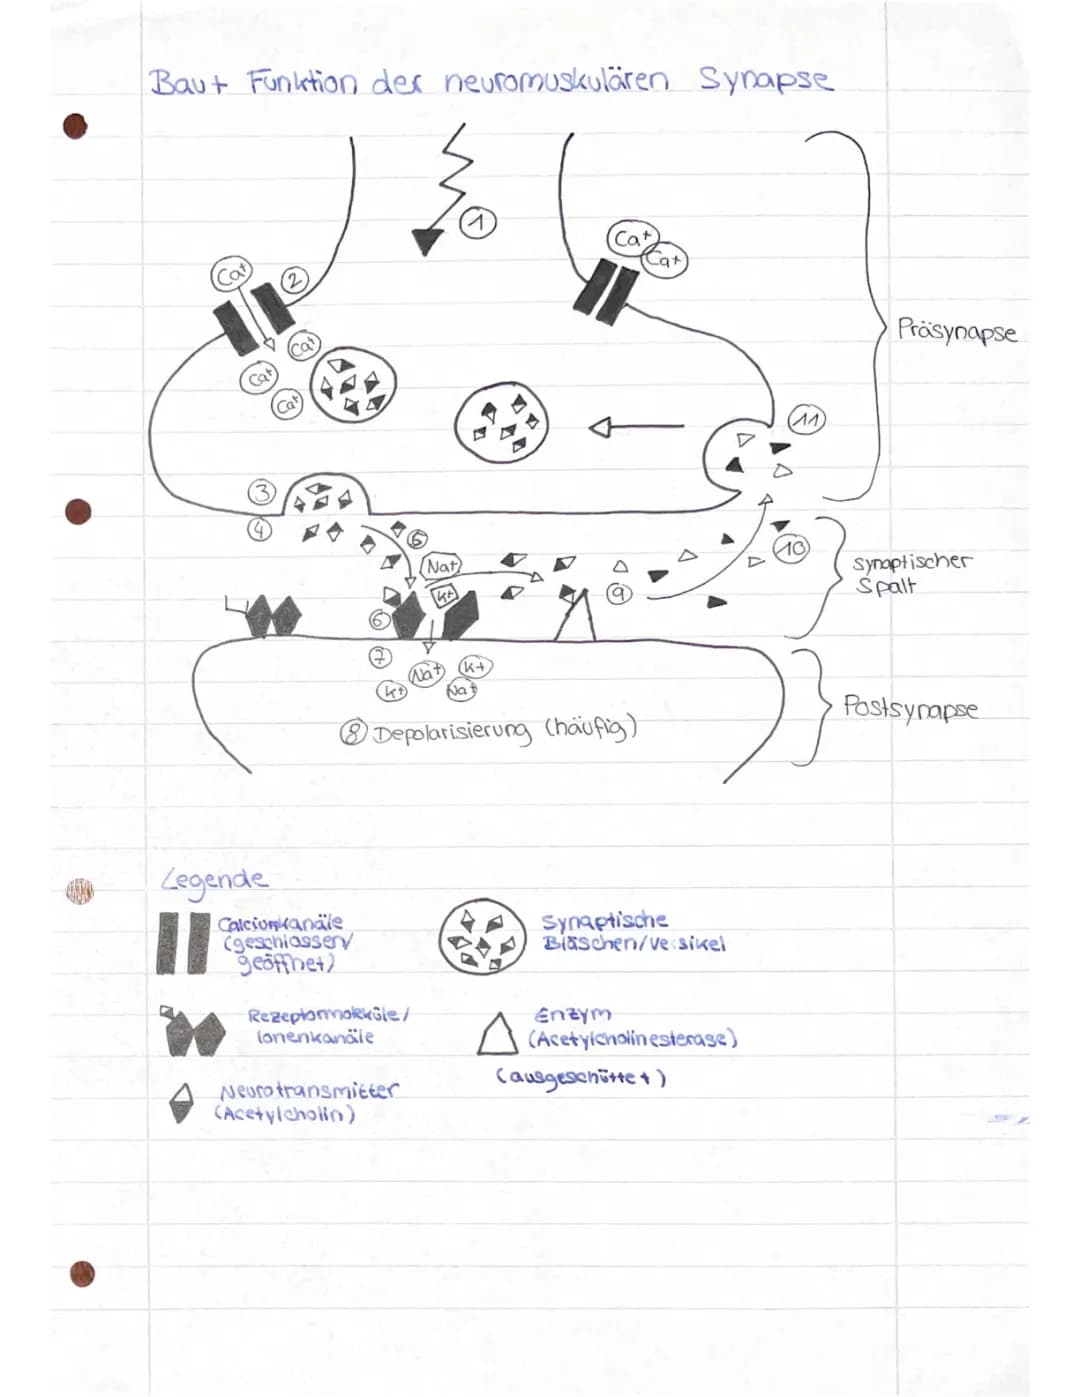 Bau+ Funktion der neuromuskulären Synapse
1
Ca+
Ca+
Ca+
2
Ca+
Ca+
Ca+
Präsynapse
11
3
4
5
Nat
K+
9
10
synaptischer
Spalt
6
7
Na+
K+
K+
Na+
Postsynapse
8 Depolarisierung (häufig)
Legende
Calciumkanäle
(geschlossen/
geöffnet)
Synaptische
Bläschen/Versikel
Rezeptormoleküle/
Ionenkanäle
Enzym
(Acetylcholinesterase)
(ausgeschüttet)
Neurotransmitter
(Acetylcholin)